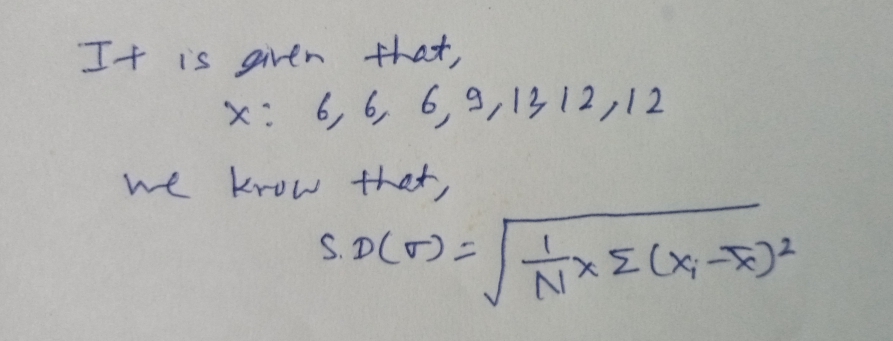 It is given that,
x: 6, 6, 6, 9, 13, 12, 12
we know that,
S.D(σ) = √(1/N × Σ(xᵢ - x̄)²)